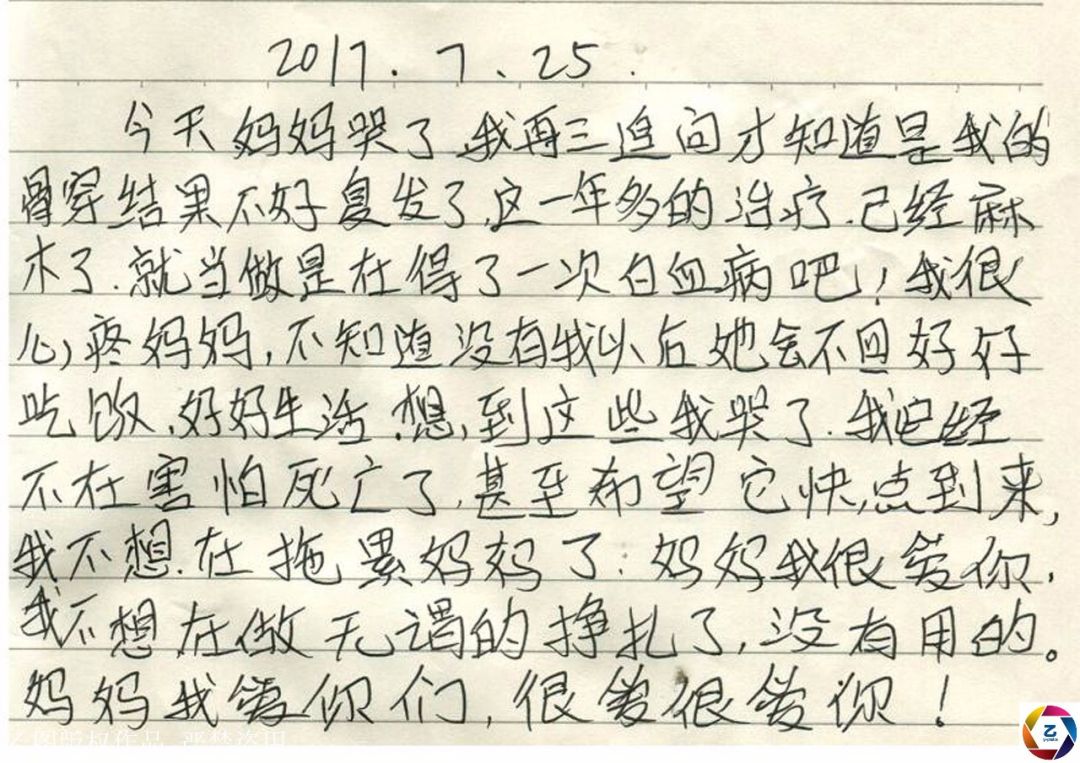 2017.7.25.
今天妈妈哭了,我再三追问才知道是我的
骨穿结果不好复发了,这一年多的治疗.已经麻
木了.就当做是在得了一次白血病吧!我很
心疼妈妈,不知道没有我以后她会不回好好
吃饭,好好生活.想到这些我哭了.我已经
不在害怕死亡了,甚至希望它快点到来,
我不想在拖累妈妈了.妈妈我很爱你,
我不想在做无谓的挣扎了,没有用的。
妈妈我爱你们,很爱很爱你!
乙图版权作品 严禁盗用
乙